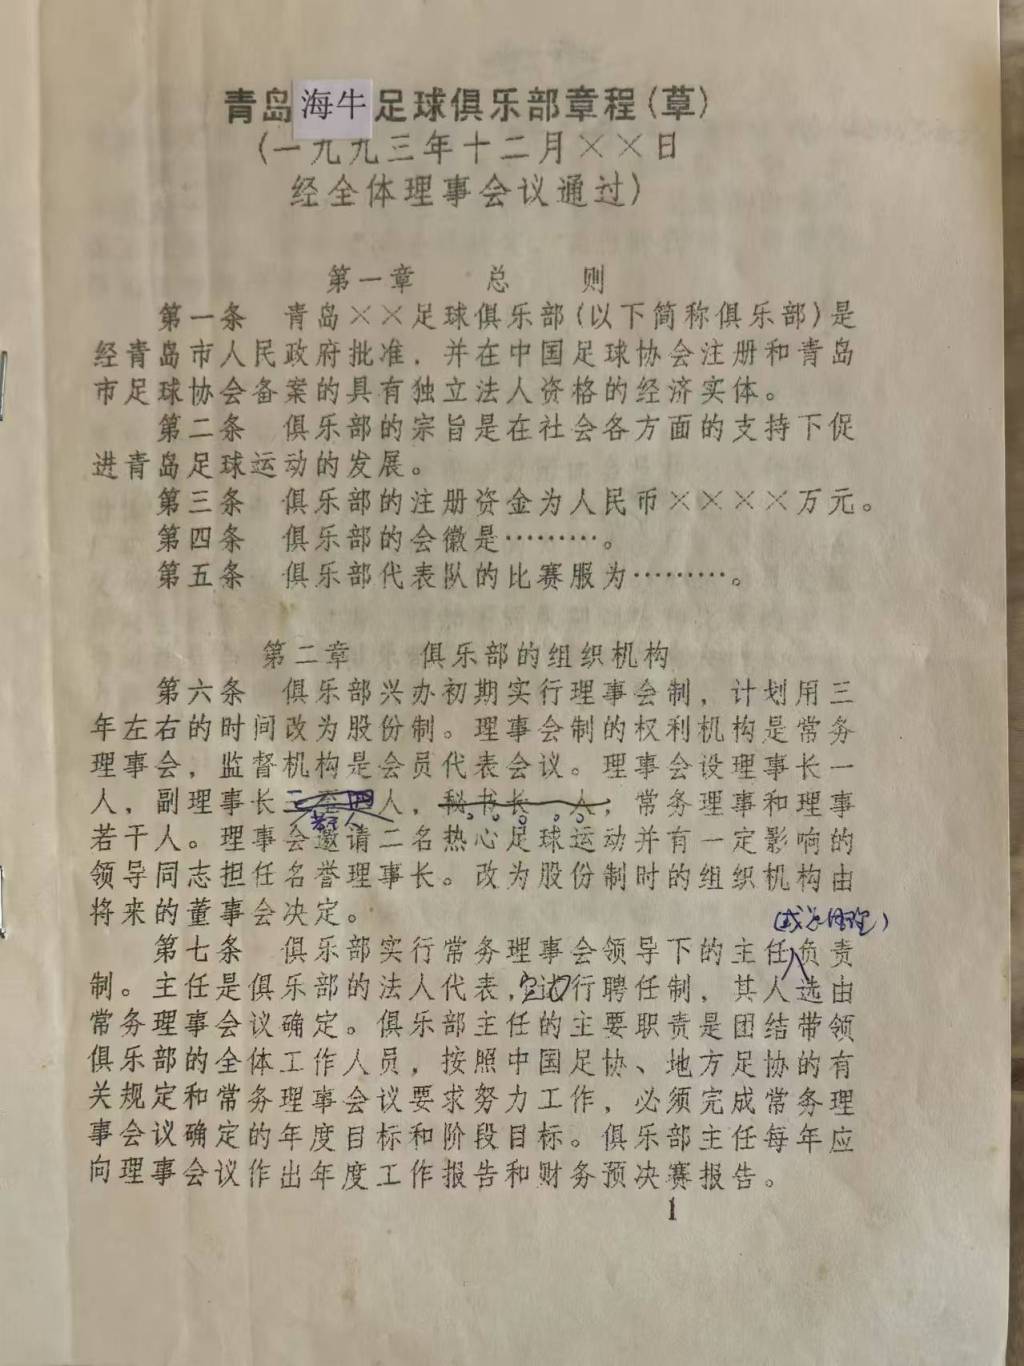 青岛海牛足球俱乐部章程(草)
(一九九三年十二月××日
经全体理事会议通过)
第一章 总 则
第一条 青岛××足球俱乐部(以下简称俱乐部)是
经青岛市人民政府批准，并在中国足球协会注册和青岛
市足球协会备案的具有独立法人资格的经济实体。
第二条 俱乐部的宗旨是在社会各方面的支持下促
进青岛足球运动的发展。
第三条 俱乐部的注册资金为人民币××××万元。
第四条 俱乐部的会徽是………。
第五条 俱乐部代表队的比赛服为………。
第二章 俱乐部的组织机构
第六条 俱乐部兴办初期实行理事会制，计划用三
年左右的时间改为股份制。理事会制的权利机构是常务
理事会，监督机构是会员代表会议。理事会设理事长一
人，副理事长三至四人，秘书长 人；常务理事和理事
若干人
若干人。理事会邀请二名热心足球运动并有一定影响的
领导同志担任名誉理事长。改为股份制时的组织机构由
将来的董事会决定。
(或总经理)
第七条 俱乐部实行常务理事会领导下的主任负责
制。主任是俱乐部的法人代表，实行聘任制，其人选由
常务理事会议确定。俱乐部主任的主要职责是团结带领
俱乐部的全体工作人员，按照中国足协、地方足协的有
关规定和常务理事会议要求努力工作，必须完成常务理
事会议确定的年度目标和阶段目标。俱乐部主任每年应
向理事会议作出年度工作报告和财务预决赛报告。
1